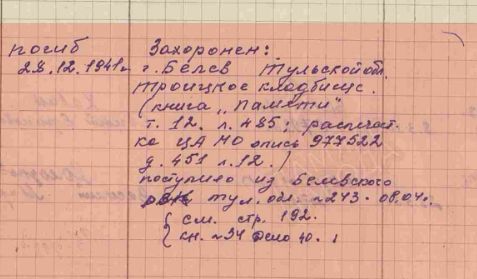 погиб
28.12.1941г
Захоронен:
г. Белев Тульской обл.
Троицкое кладбище.
(книга „Памяти"
т. 12. л. 485; распечат
ка ЦА МО опись 977522
д. 451 л. 12.)
поступило из Белевского
тул. обл. №243. 08.04г.
см. стр. 192.
кн. №34 дело 40.